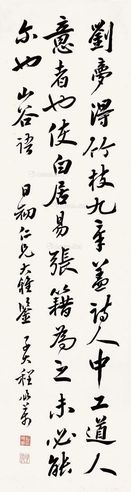 劉夢得竹枝九章蓋詩人中工道人
意者也使白居易張籍為之未必能
尔也 山谷語
日初仁兄大雅鑒 子大程頌萬